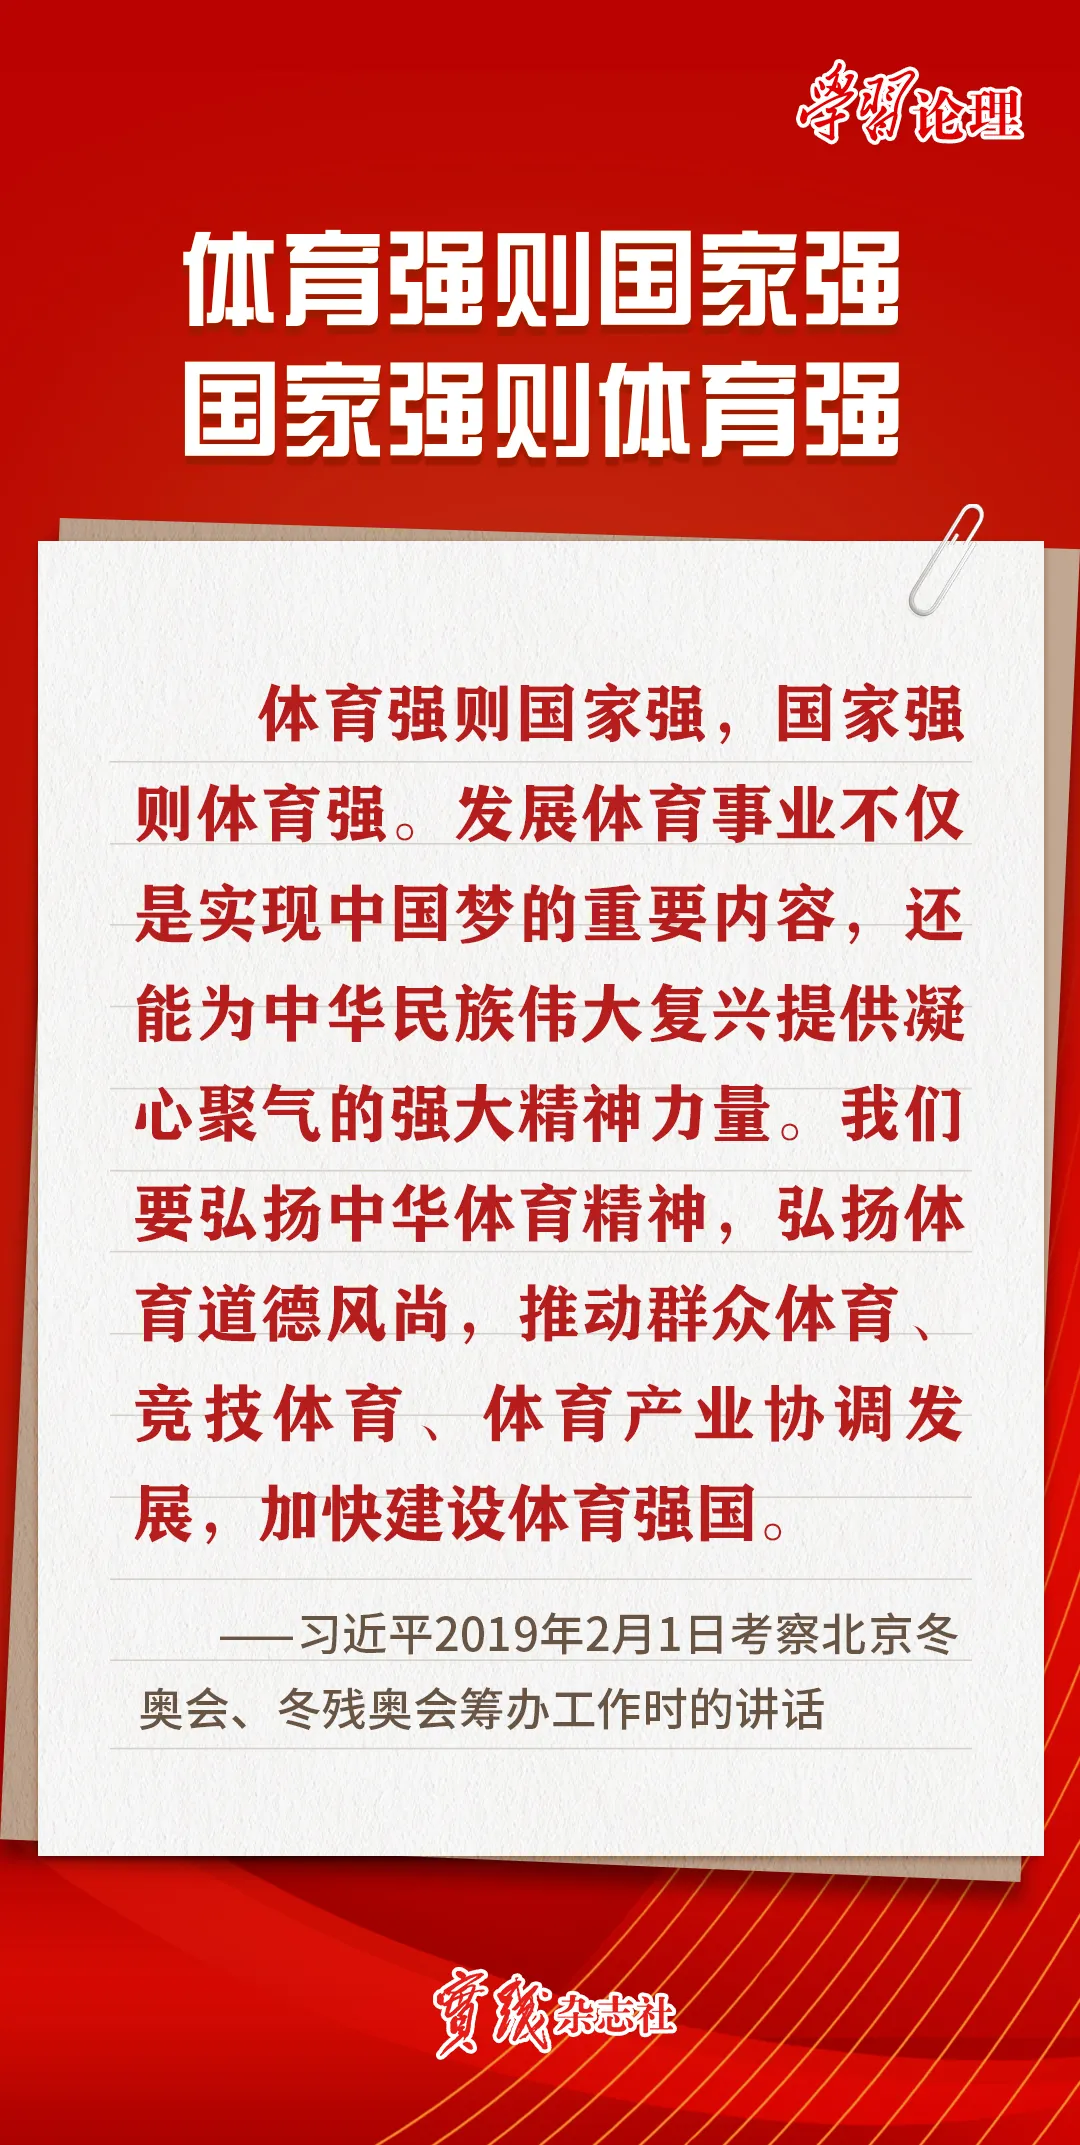 学習论理
体育强则国家强
国家强则体育强
体育强则国家强，国家强
则体育强。发展体育事业不仅
是实现中国梦的重要内容，还
能为中华民族伟大复兴提供凝
心聚气的强大精神力量。我们
要弘扬中华体育精神，弘扬体
育道德风尚，推动群众体育、
竞技体育、体育产业协调发
展，加快建设体育强国。
——习近平2019年2月1日考察北京冬
奥会、冬残奥会筹办工作时的讲话
實践杂志社